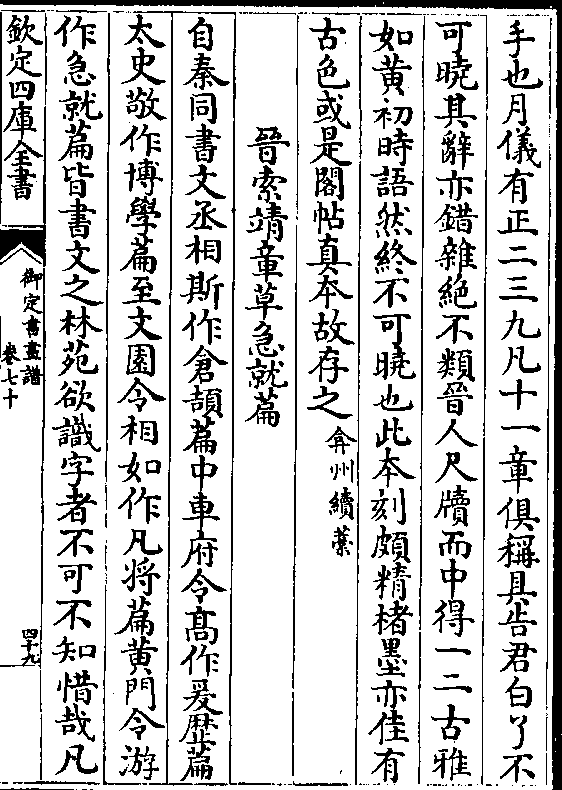 手也月儀有正二三九凡十一章俱稱具告君白了不
可曉其辭亦錯雜絕不類晉人尺牘而中得一二古雅
如黃初時語然終不可曉也此本刻頗精楮墨亦佳有
古色或是閣帖真本故存之 弇州續藁
晉索靖章草急就篇
自秦同書文丞相斯作倉頡篇中車府令髙作爰歴篇
太史敬作博學篇至文園令相如作凡將篇黄門令游
作急就篇皆書文之林苑欲識字者不可不知惜哉凡
欽定四庫全書
御定書畫譜
卷七十
四十九